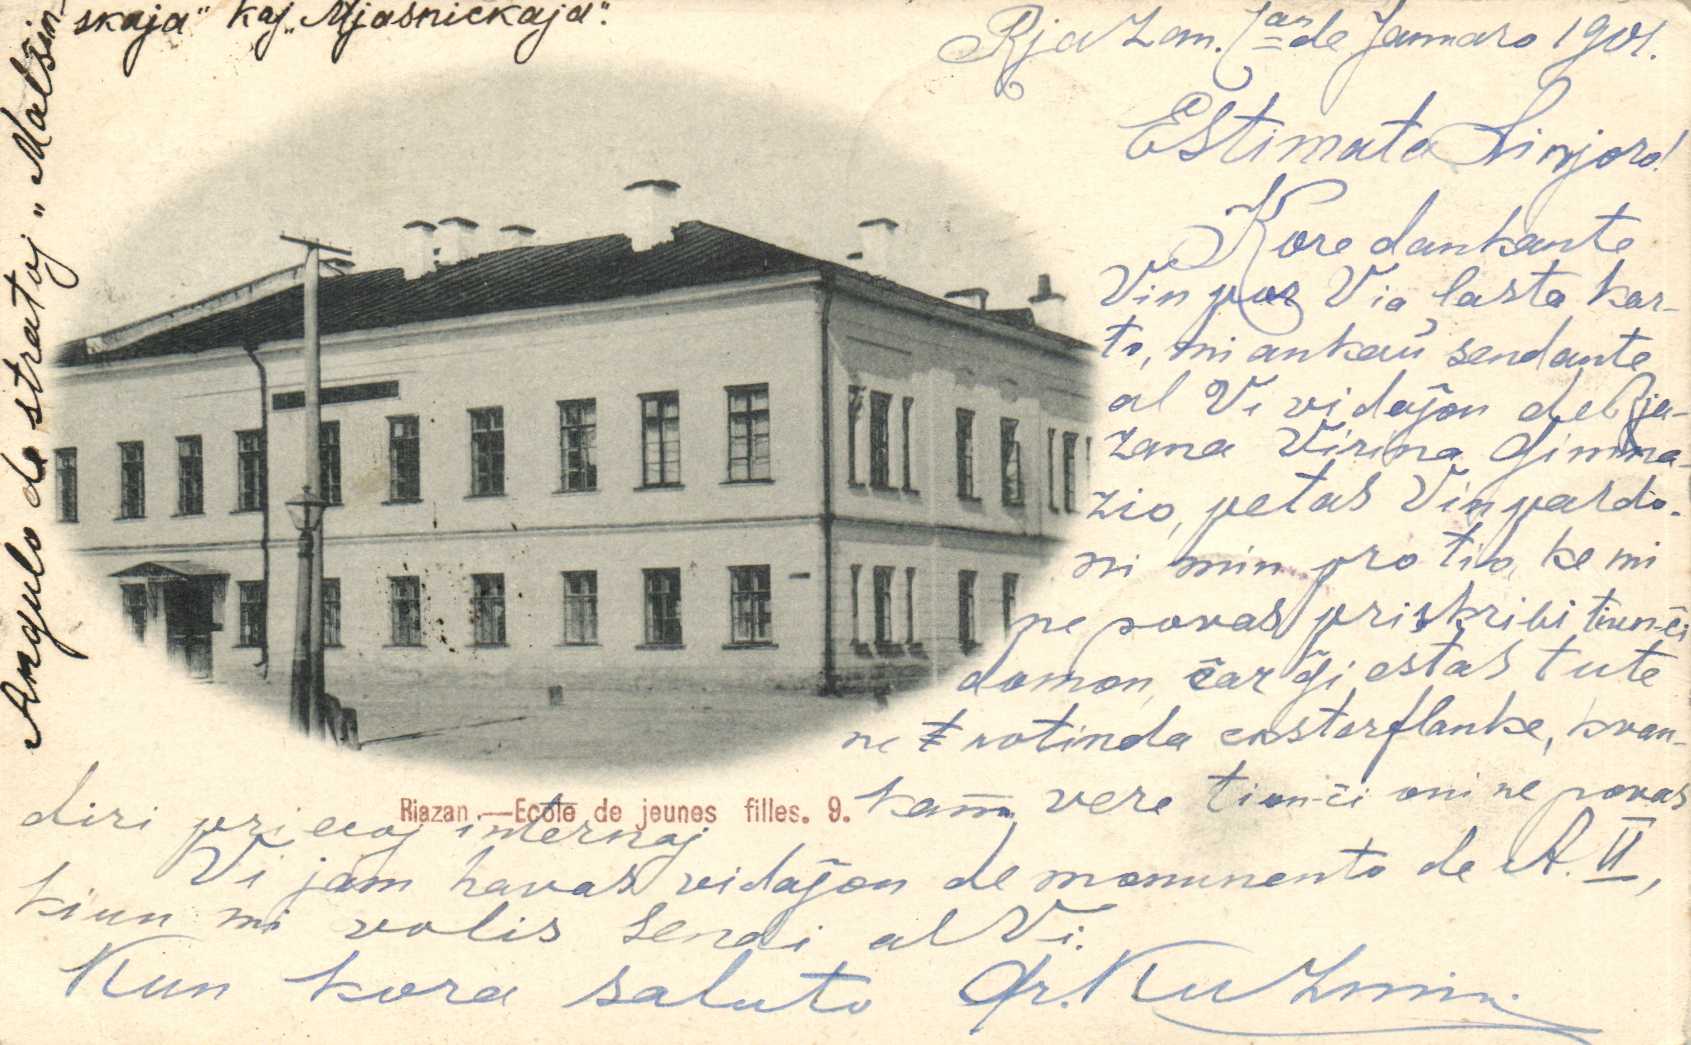 Angulo de stratoj „Malŝin-
skaja" kaj „Mjasnickaja".
Rjazan. 1an de Januaro 1901.
Estimata Sinjoro!
Kore dankante
Vin por Via lasta kar-
to, mi ankaŭ sendante
al Vi vidaĵon de Rja-
zana Virina Gimna-
zio, petas Vin pardo-
ni min pro tio, ke mi
ne povas priskribi tiun-ĉi
domon, ĉar ĝi estas tute
ne notinda eksterflanke, kvan-
kam vere tion-ĉi oni ne povas
diri pri ecoj internaj
Riazan.—Ecole de jeunes filles. 9.
Vi jam havas vidaĵon de monumento de A. II,
kiun mi volis sendi al Vi.
Kun kora saluto Gr. Kuzmin